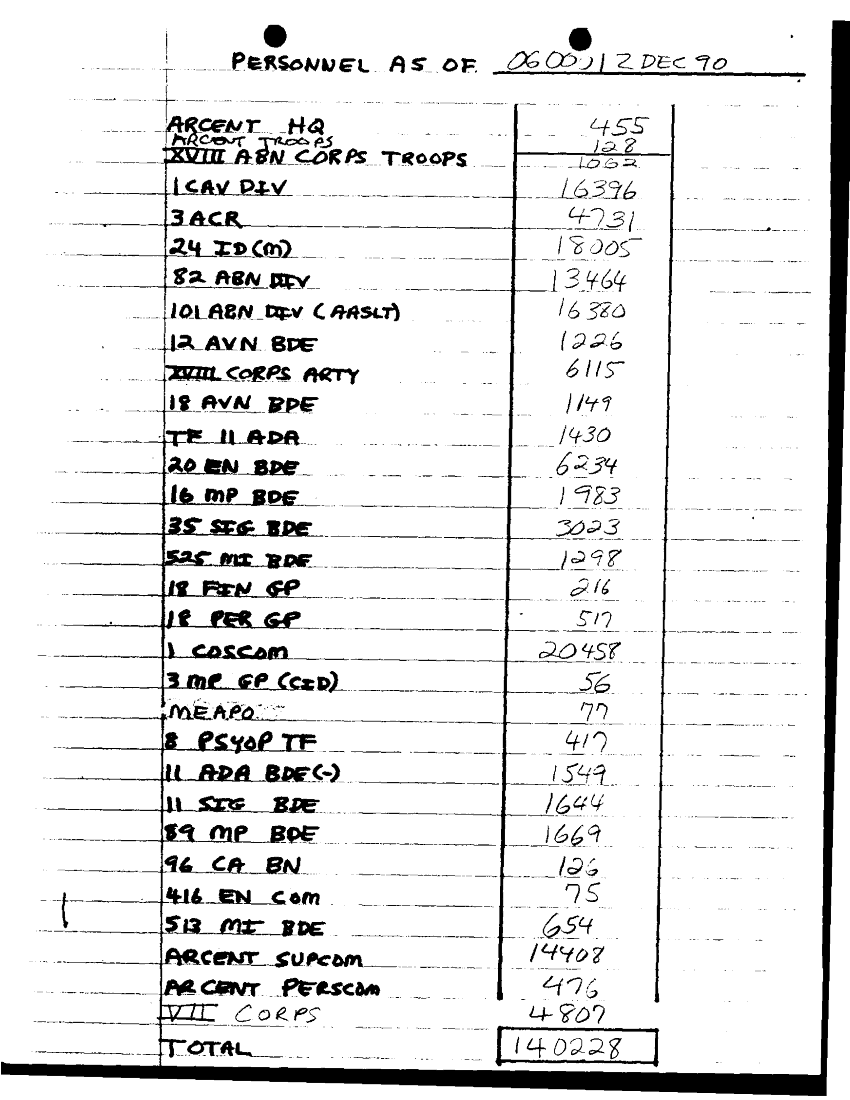 PERSONNEL AS OF 0600J12 DEC 90
ARCENT HQ 455
ARCENT TROOPS 128
XVIII ABN CORPS TROOPS 1062
1 CAV DIV 16396
3 ACR 4731
24 ID (M) 18005
82 ABN DIV 13464
101 ABN DIV (AASLT) 16380
12 AVN BDE 1226
XVIII CORPS ARTY 6115
18 AVN BDE 1149
TF 11 ADA 1430
20 EN BDE 6234
16 MP BDE 1983
35 SIG BDE 3023
525 MI BDE 1298
18 FIN GP 216
18 PER GP 517
1 COSCOM 20458
3 MP GP (CID) 56
MEAPO 77
8 PSYOP TF 417
11 ADA BDE (-) 1549
11 SIG BDE 1644
89 MP BDE 1669
96 CA BN 126
416 EN COM 75
513 MI BDE 654
ARCENT SUPCOM 14408
ARCENT PERSCOM 476
VII CORPS 4807
TOTAL 140228